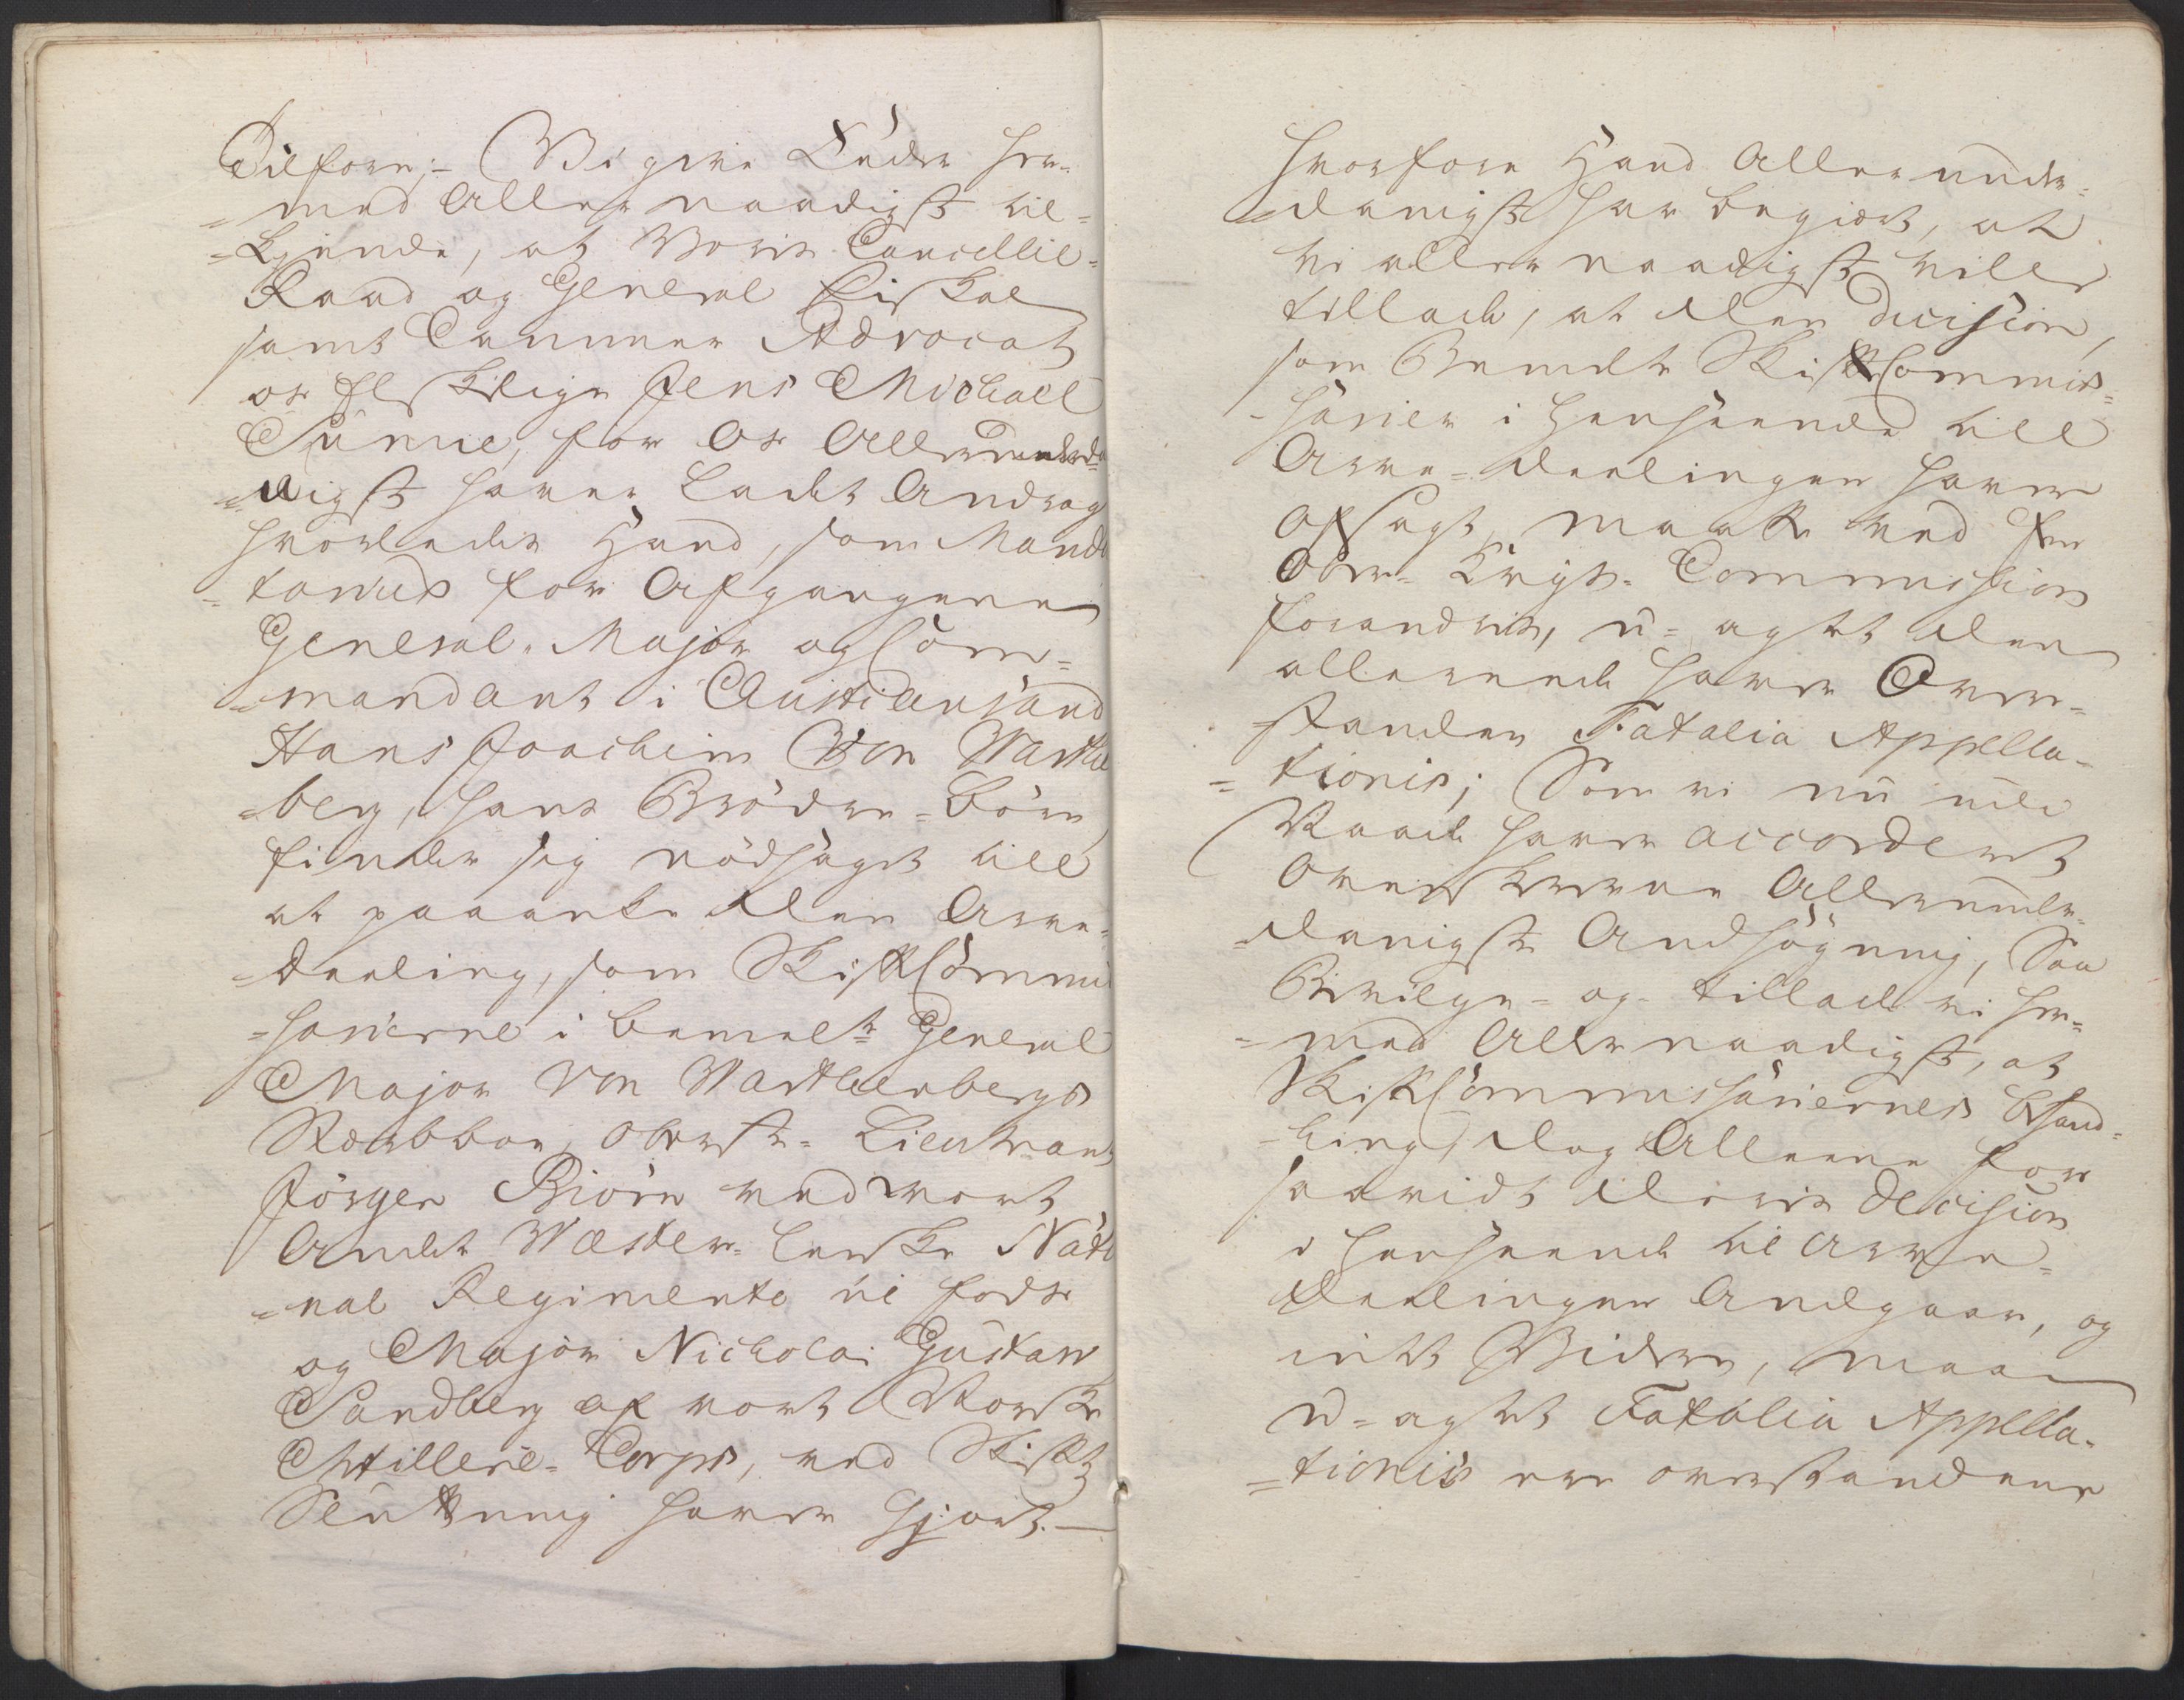 Tilforn;- Vi give Eder her-
=med Allernaadigst til=
=kiende, at Voris Cancellie=
Raad og General Fiskal
samt Cammer Advocat
os Elskelige Jens Michael
Sunnie, for Os Allerunderda
=nigst haver ladet Andrag
hvorledes Hand, som Manda
=tarius for Afgangene
General-Major og Com=
=mandant i Christiansand
Hans Joachim Von Warthe
=berg, hans Brødre-Børn
finder sig nødsaget till
at paaanke den Arve=
=deeling, som Skiftcommis
=sarierne i bemelte General
Major Von Warthenbergs
Sterbboe, Oberst-Lieutnant
Jörgen Biörn ved vort
Andet Wester-lenske Natio
=nal Regimente til fods
og Major Nicholai Gustav
Sandberg af vort Norske
Artillerie-Corps, ved Skiftes
Slutning haver Gjort.—
hvorfore Hand Allerunder=
=danigst har begiert, at
Vi allernaadigst ville
tillade, at den Decision,
som Bemelte Skiftcommis=
=sarier i henseende till
Arve-deelingen haver
Afsagt, maatte ved
Ober-Krigs-Commission
forandres, u-agtet den
allereede haver Over=
=standen Fatalia Appella-
=tionis; Som vi nu udi
Naade haver accorderet
Ovenskrevne Allerunder-
=danigste Andsøgning, Saa
Bevilge- og tillade vi her=
=med Allernaadigst, at
Skiftcommissariernes Behand=
=ling, dog Alleene for
saavidt deris Decision
i henseende til Arve=
Deelingen Andgaar, og
intet Videre, maa
u-agtet Fatalia Appella-
=tionis ere overstandene